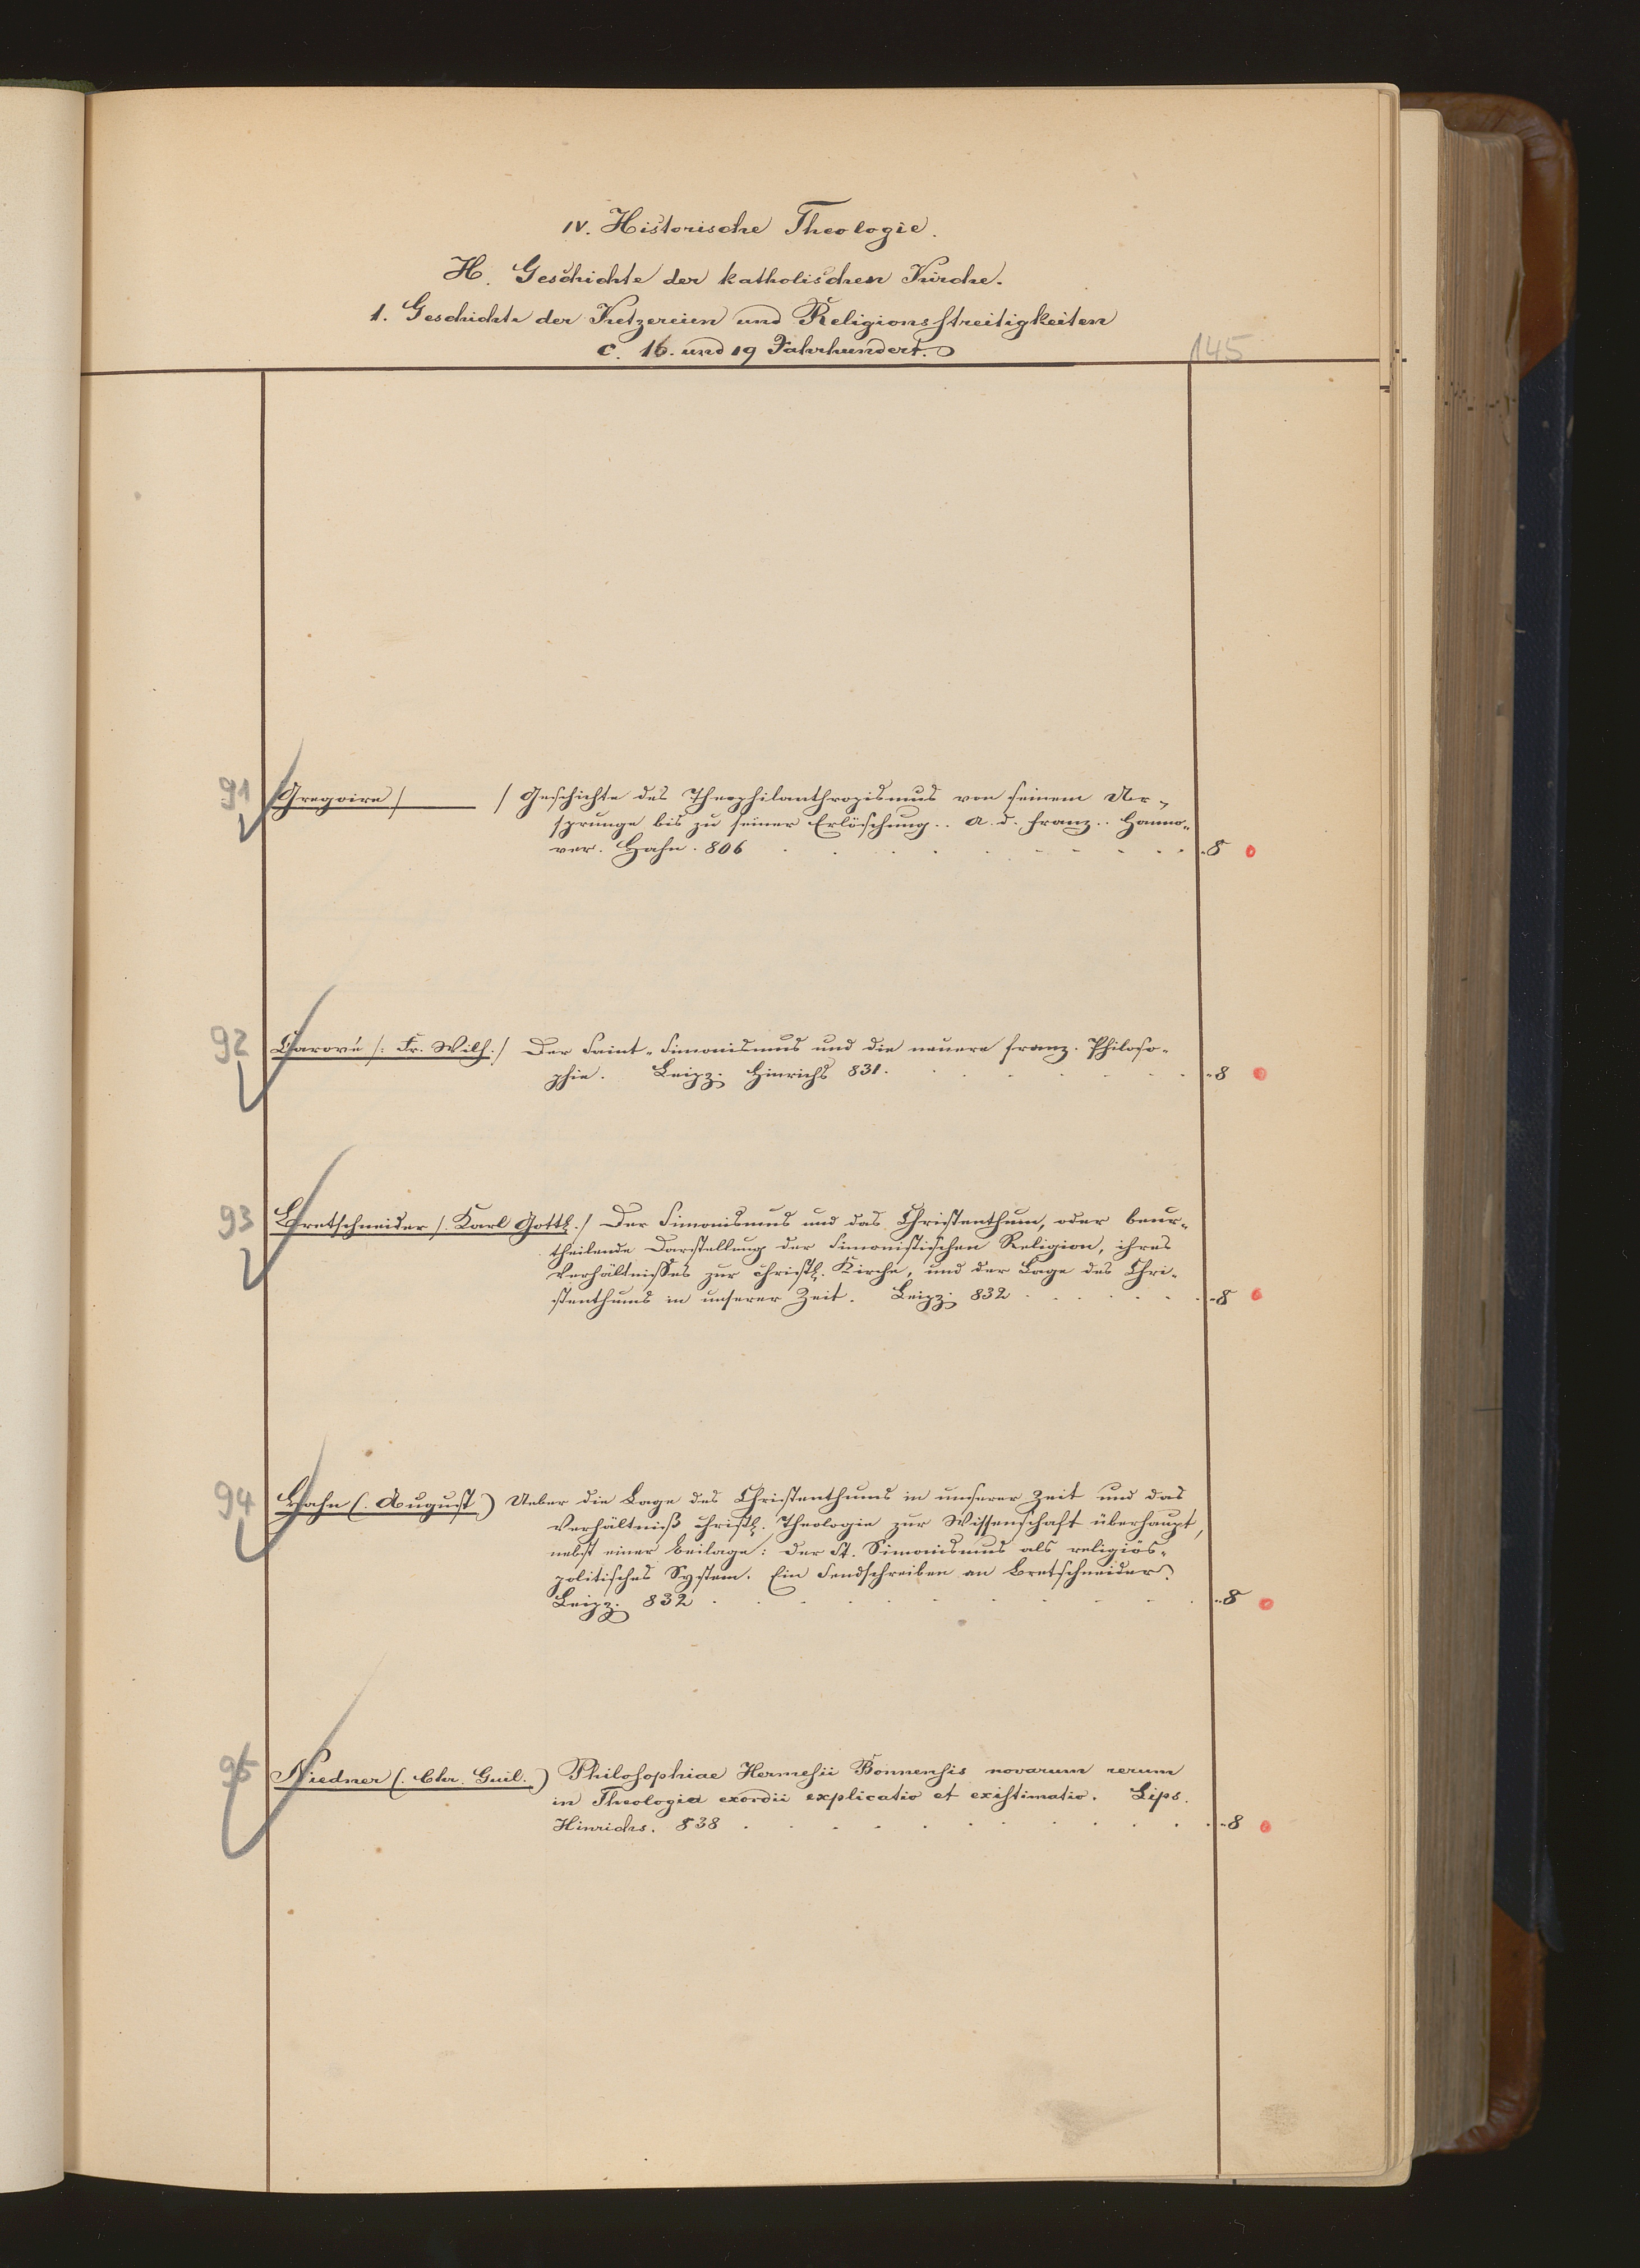 IV. Historische Theologie.
H. Geschichte der katholischen Kirche.
1. Geschichte der Ketzereien und Religionsstreitigkeiten
c. 16. und 19 Jahrhundert.
145
91 Gregoire / / Geschichte des Theophilanthropismus von seinem Ur-
sprunge bis zu seiner Erlöschung.. A. d. franz.. Hanno-
ver. Hahn. 806 8
92 Carové /: Fr. Wilh. / Der Saint-Simonismus und die neuere franz. Philoso-
phie. Leipz. Hinrichs 831. 8
93 Bretschneider /: Karl Gottl. / Der Simonismus und das Christenthum, oder beur-
theilende Darstellung der Simonistischen Religion, ihres
Verhältnisses zur christl. Kirche, und der Lage des Chri-
stenthums in unserer Zeit. Leipz. 832 8
94 Hahn (: August ) Ueber die Lage des Christenthums in unserer Zeit und das
Verhältniß christl. Theologie zur Wissenschaft überhaupt,
nebst einer Beilage: der St. Simonismus als religiös-
politisches System. Ein Sendschreiben an Bretschneider.
Leipz. 832 8
95 Niedner (: Chr. Guil. ) Philosophiae Hermesii Bonnensis novarum rerum
in Theologia exordii explicatio et existimatio. Lips.
Hinrichs. 838 8